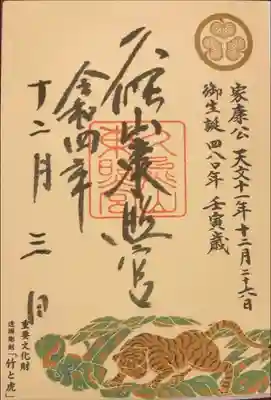 家康公 天文十一年十二月二十六日
御生誕 四八〇年 壬寅歳
久能山東照宮
令和四年
十二月三日
重要文化財
透調彫刻「竹と虎」